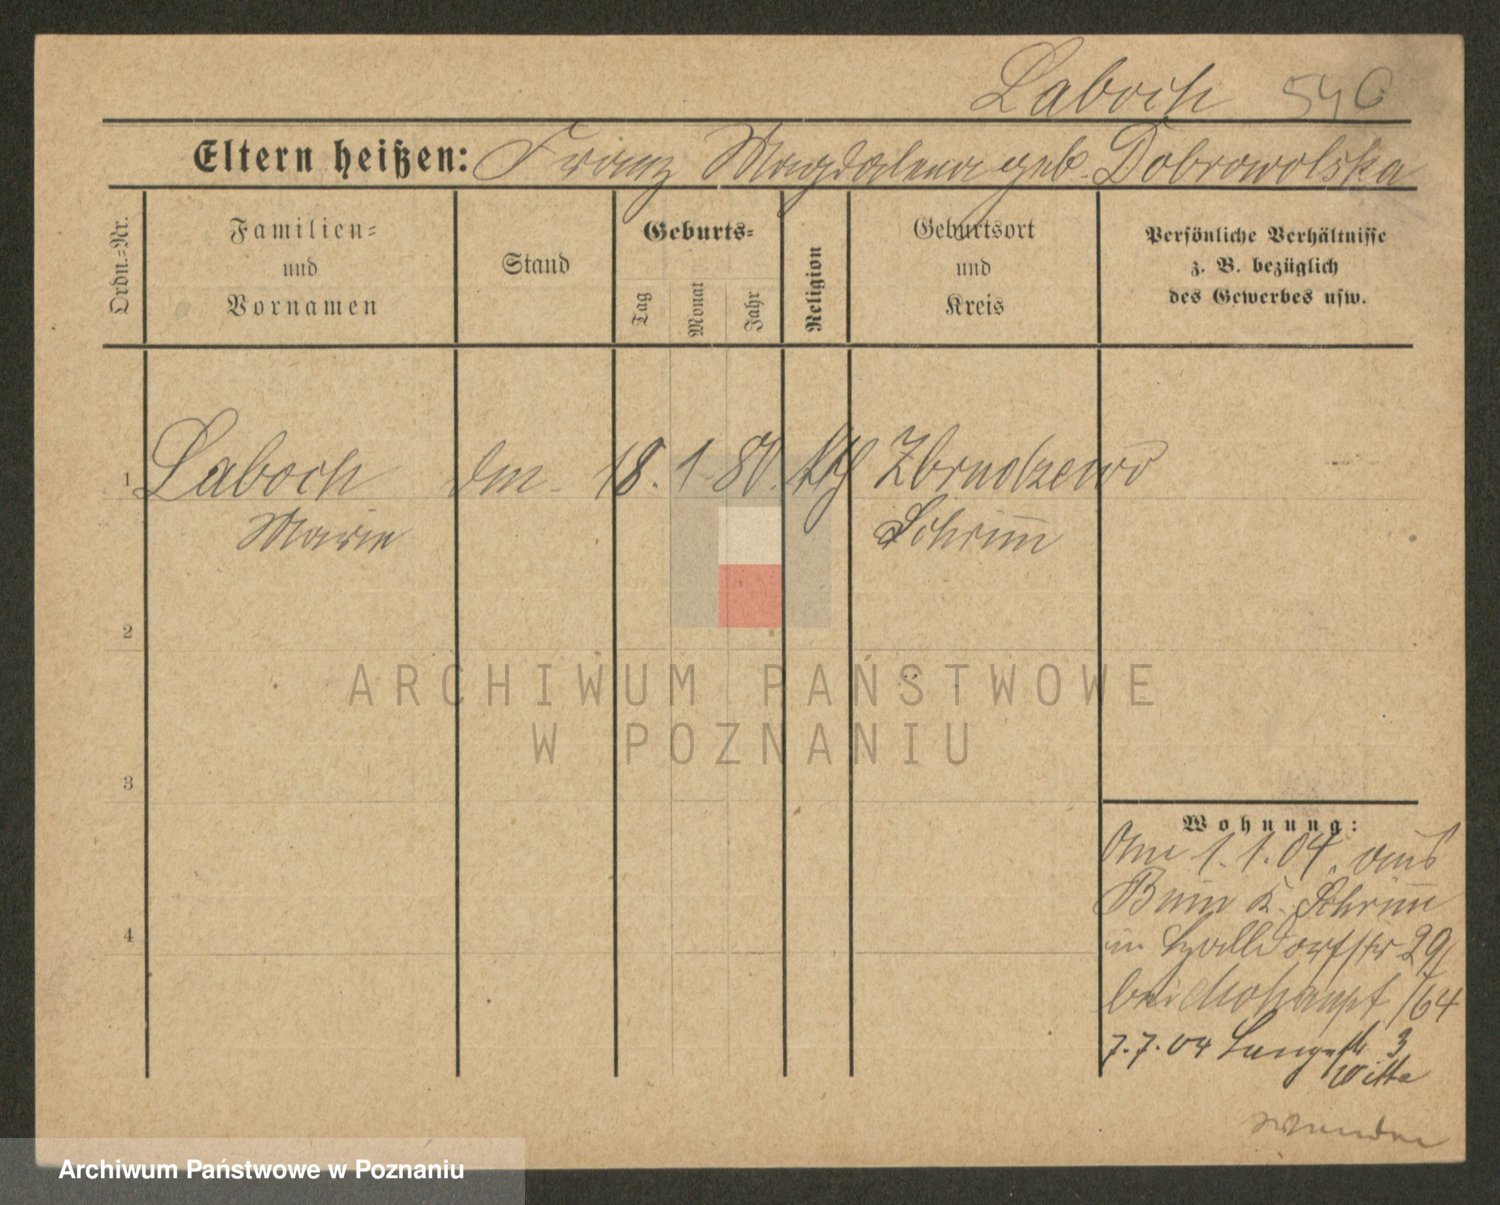 Laboch 540
Eltern heißen: Franz Magdalena geb. Dobrowolska
Ordn.-Nr.
Familien-
und
Vornamen
Stand
Geburts-
Tag
Monat
Jahr
Religion
Geburtsort
und
Kreis
Persönliche Verhältnisse
z. B. bezüglich
des Gewerbes usw.
1 Laboch 18. 1. 80. kth Zbrudzewo
Marie Schrimm
2
3
4
ARCHIWUM PAŃSTWOWE
W POZNANIU
Wohnung:
1. 1. 04. aus
Bnin K. Schrimm
in Halldorfstr 29
bei /64
7.7.04 Langestr 3
Witte
wenden
Archiwum Państwowe w Poznaniu